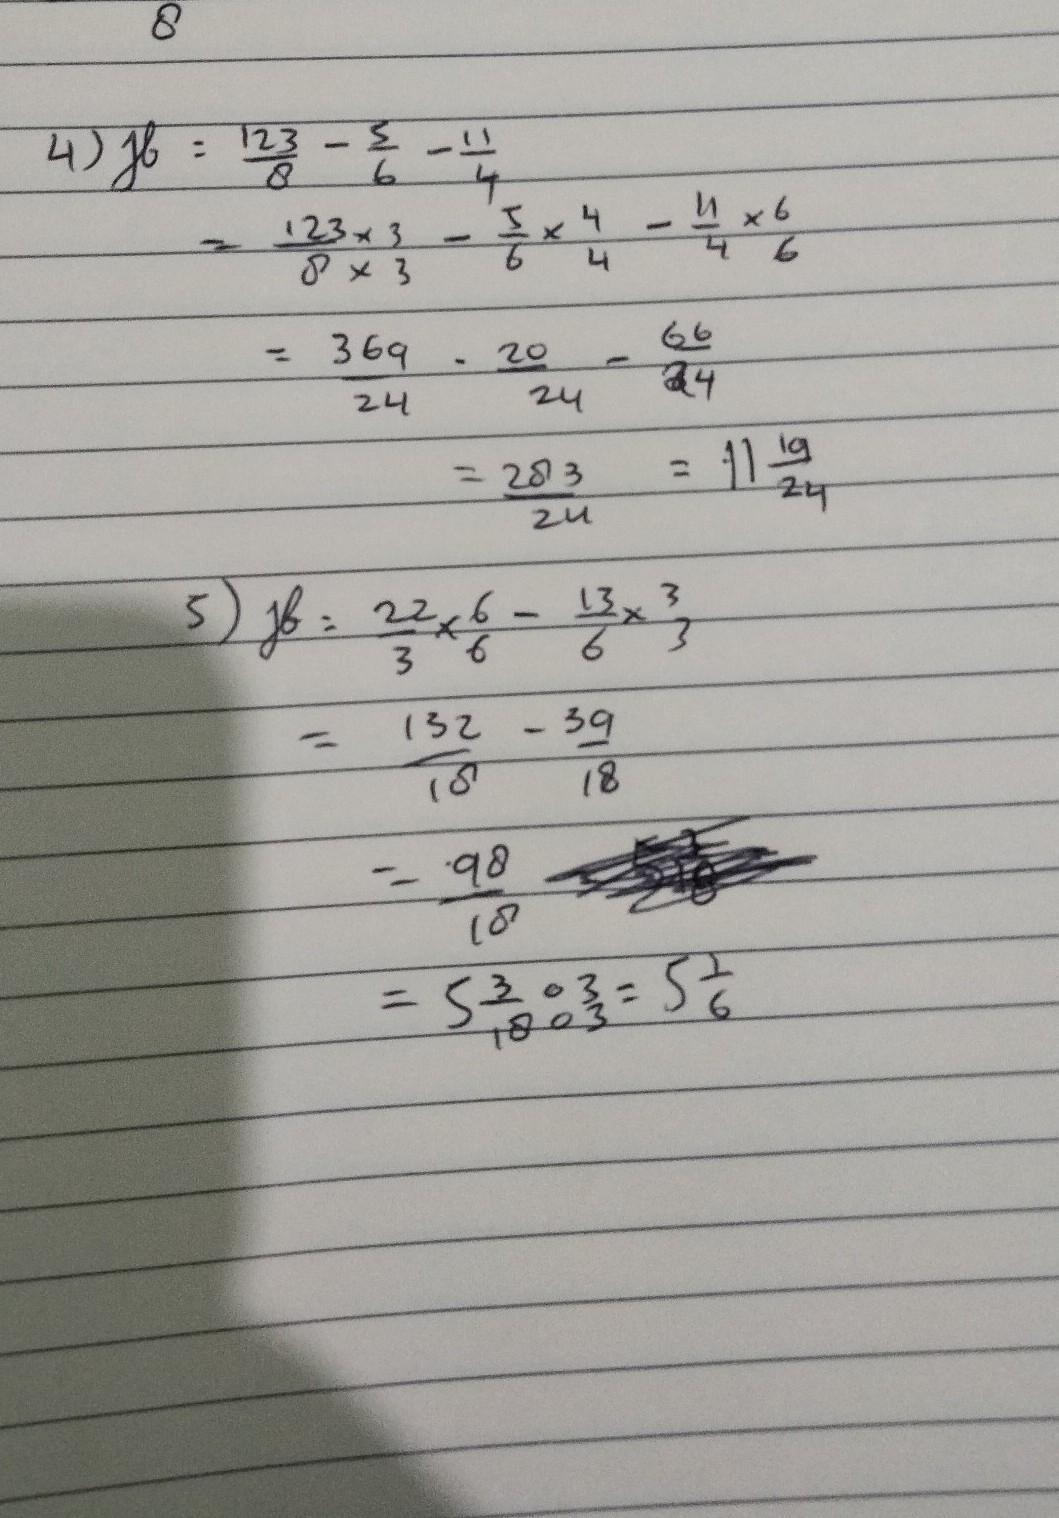 8
4) jb = 123/8 - 5/6 - 11/4
= 123 x 3/8 x 3 - 5/6 x 4/4 - 11/4 x 6/6
= 369/24 - 20/24 - 66/24
= 283/24 = 11 19/24
5) jb = 22/3 x 6/6 - 13/6 x 3/3
= 132/18 - 39/18
= 98/18
= 5 3/18 : 3/3 = 5 1/6